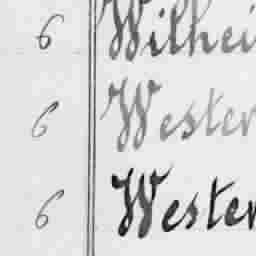 6 Wilhei
6 Wester
6 Wester